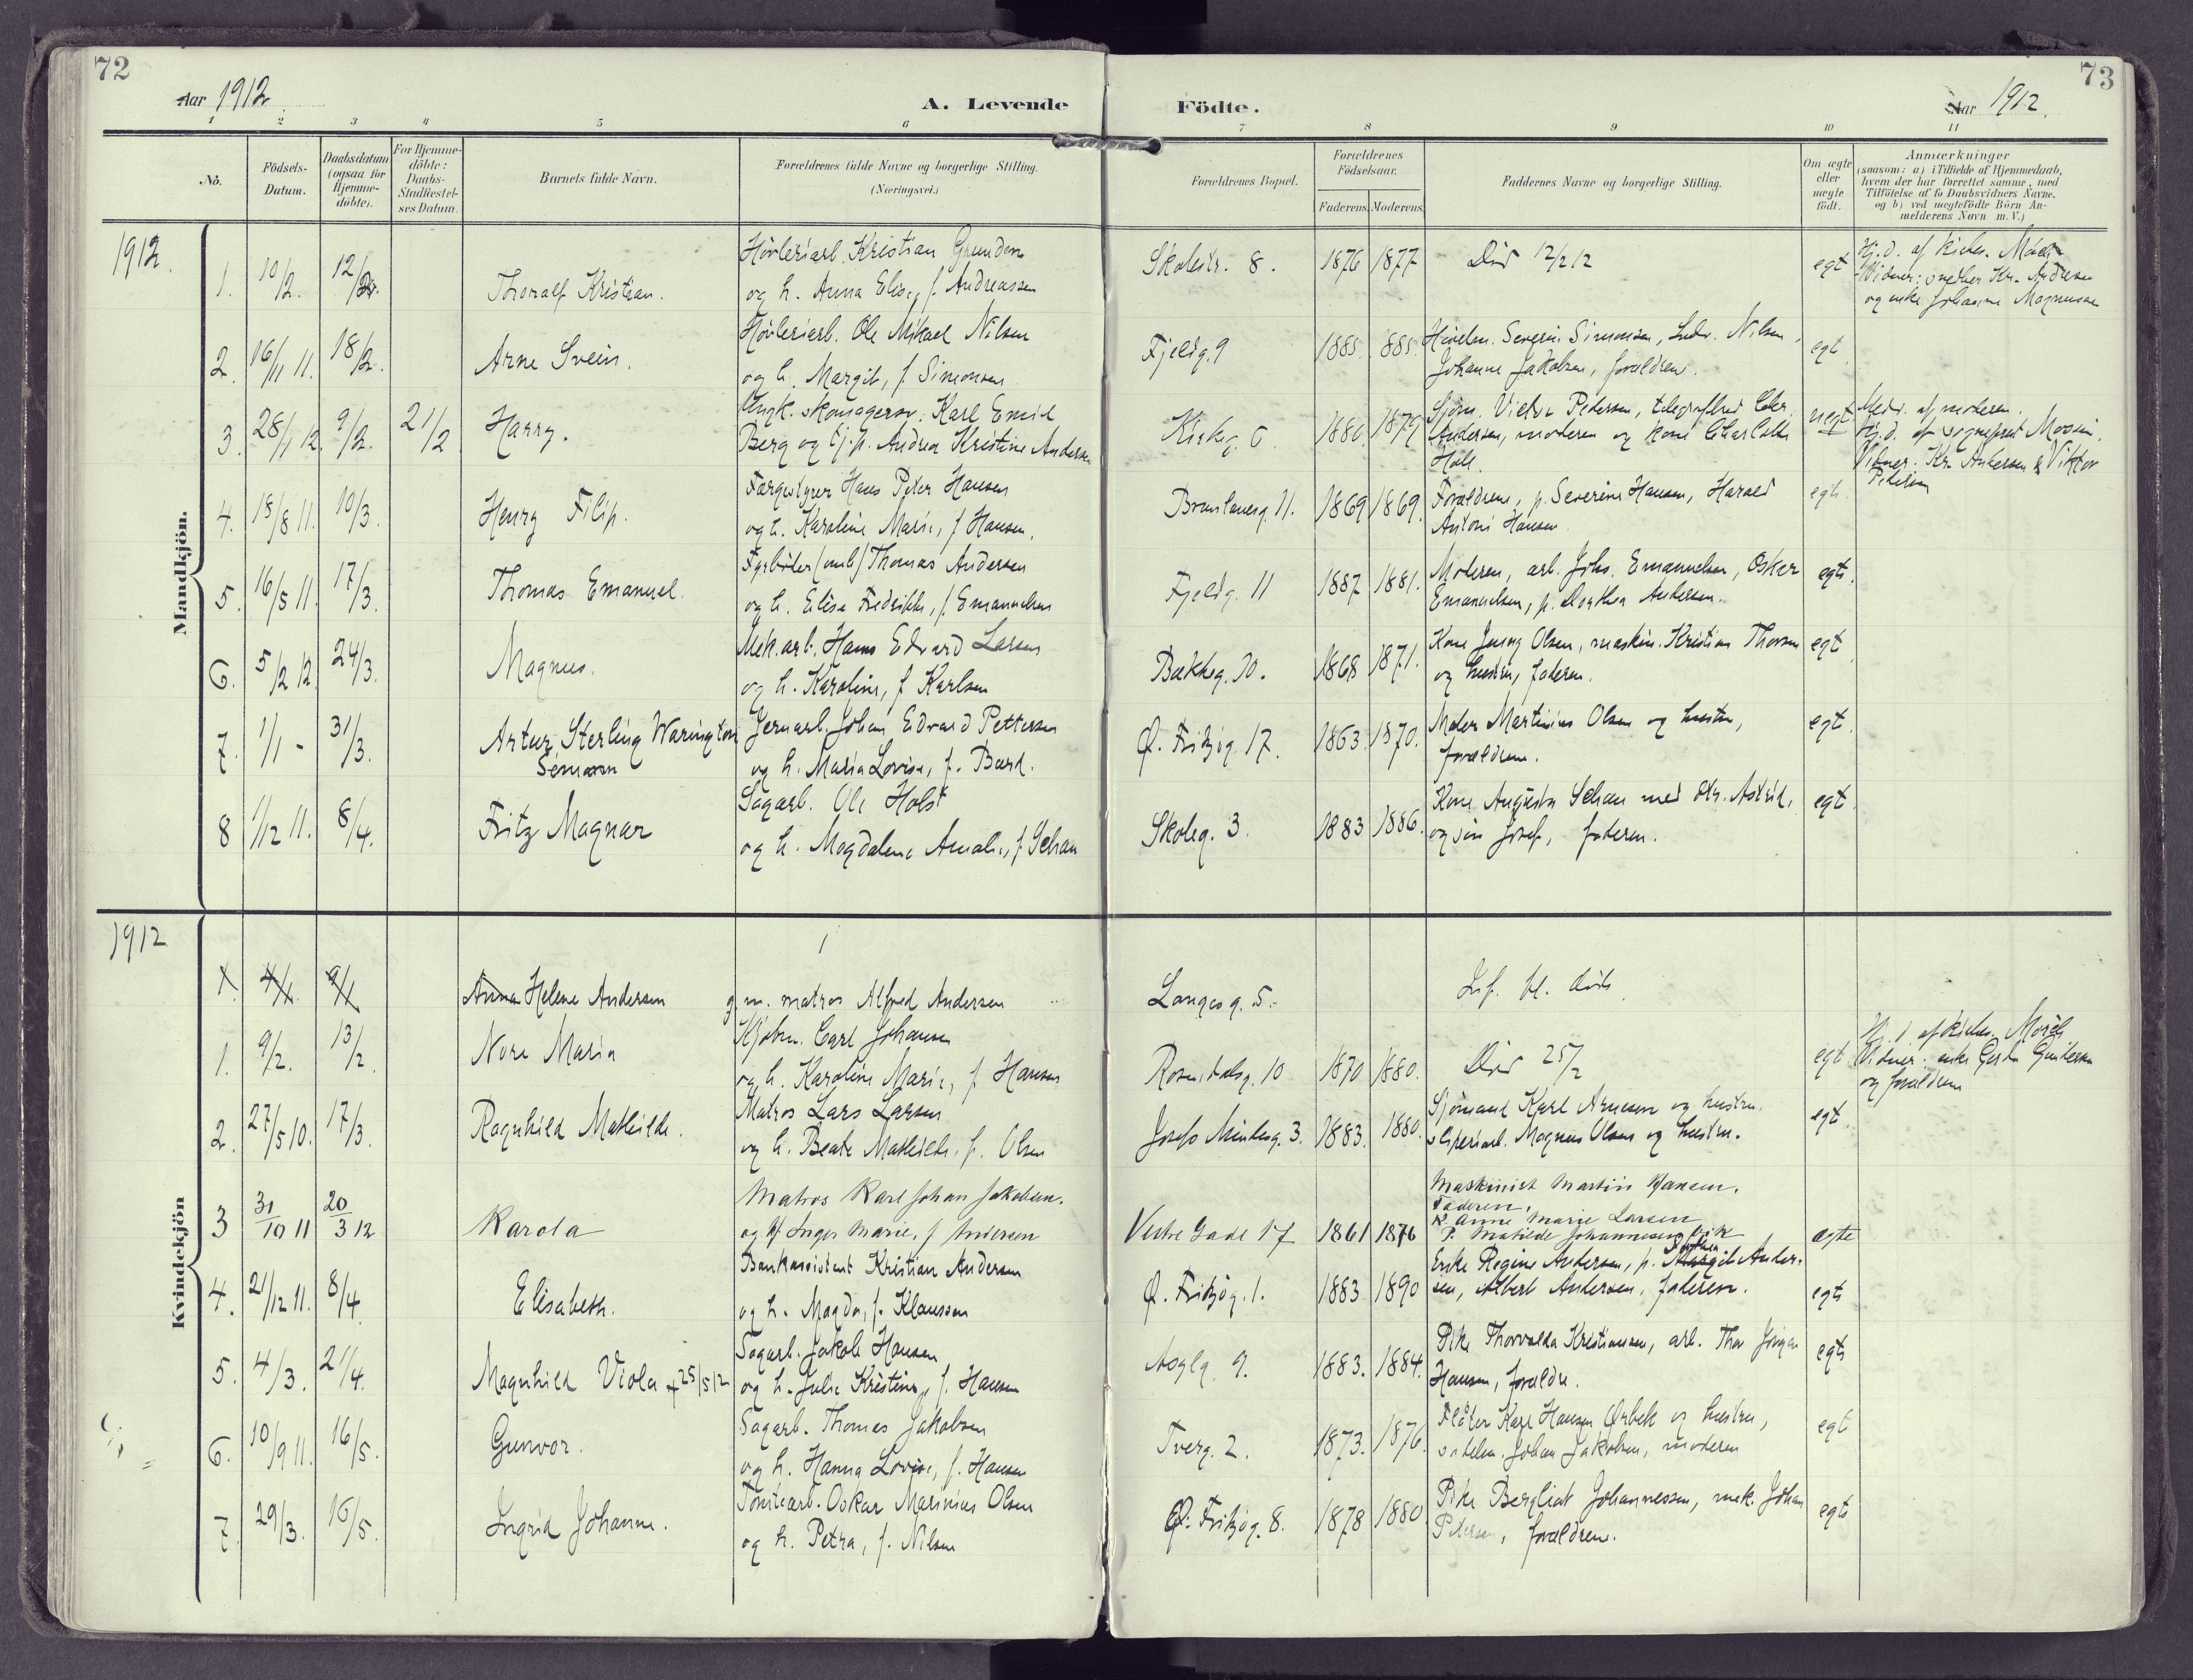 72
Aar 1912
A. Levende
Födte.
Aar 1912.
73
1 2 3 4 5 6 7 8 9 10 11
No.
Födsels-
Datum.
Daabsdatum
(ogsaa for
Hjemme-
döbte).
For Hjemme-
döbte:
Daabs-
Stadfæstel-
ses Datum.
Barnets fulde Navn.
Forældrenes fulde Navne og borgerlige Stilling.
(Næringsvei.)
Forældrenes Bopæl.
Forældrenes
Födselsaar.
Faderens. Moderens.
Faddernes Navne og borgerlige Stilling.
Om ægte
eller
uægte
födt.
Anmærkninger
(saasom: a) i Tilfælde af Hjemmedaab,
hvem der har forrettet samme, med
Tilföielse af to Daabsvidners Navne.
og b) ved uægtefödte Börn An-
melderens Navn m. V.)
Mandkjön.
1912.
1. 10/2. 12/2. Thoralf Kristian.
Hövleriarb. Kristian Gundersen
og h. Anna Elise, f. Andreassen
Skolestr. 8. 1876 1877 Död 12/2 12 egt
Hj.d. af
Vidner: Kr. Andersen
og enke Johanne Magnussen
2. 16/11 11. 18/2. Arne Svein.
Hövleriarb. Ole Mikael Nilsen
og h. Margit, f. Simonsen
Fjeldg. 9 1885. 1885.
Severin Simonsen, Ludv. Nilsen,
Johanne Jakobsen, forældrene. egt
3. 28/1 12. 9/2. 21/2 Harry.
Ungk. skomagersv. Karl Emil
Berg og tj.p. Andrea Kristine Andersen
Kirkeg. 6 1886. 1879
Sjöm. Victor Pedersen, Chr.
Andersen, moderen og kone Charlotte
Holt. uegt
Medd. af moderen.
Hj.d. af sogneprest
Vidner: Kr. Andersen & Viktor
Pedersen
4. 15/8 11. 10/3. Henry Filip.
Færgestyrer Hans Peter Hansen
og h. Karoline Marie, f. Hansen.
Brunlanesg. 11. 1869 1869.
Forældrene, p. Severine Hansen, Harald
Antoni Hansen. egt.
5. 16/5 11. 17/3. Thomas Emanuel.
Fyrböter Thomas Andersen
og h. Elise Fredrikke, f. Emanuelsen
Fjeldg. 11 1887 1881.
Moderen, arb. Johs. Emanuelsen, Oskar
Emanuelsen, p. Dorthea Andersen. egt.
6. 5/2 12. 24/3. Magnus.
Mek. arb. Hans Edvard Larsen
og h. Karoline, f. Karlsen
Bækkeg. 10. 1868 1871.
Kone Jenny Olsen, maskin. Kristian Thorsen
og hustru, faderen. egt
7. 1/1 - 31/3. Artur Sterling Warington
Semann
Jernarb. Johan Edvard Pettersen
og h. Maria Lovise, f. Bard.
Ø. Fritzög. 17. 1863 1870.
Maler Martinius Olsen og hustru,
forældrene. egt.
8 1/12 11. 8/4. Fritz Magnar
Sagarb. Ole Holst
og h. Magdalene Amalie, f. Schau
Skoleg. 3. 1883 1886.
Kone Augusta Schau med dtr. Astrid,
og sön Josef, faderen. egt.
Kvindekjön
1912
1. 4/1. 9/1 Anna Helene Andersen
g. m. matros Alfred Andersen
Langesg. 5.
1. 9/2. 13/2 Nora Maria
Carl Johansen
og h. Karoline Marie, f. Hansen
Rosendalsg. 10 1870 1880. Död 25/2 egt
Hj. d. af
Vidner: enke Gundersen
og forældrene
2. 27/5 10. 17/3. Ragnhild Mathilde.
Matros Lars Larsen
og h. Beate Mathilde, f. Olsen
Josefs Mindesg. 3. 1883. 1880.
Sjömand Karl Arnesen og hustru.
sliperiarb. Magnus Olsen og hustru. egt.
3 31/10 11 20/3 12 Karola
Matros Karl Johan Jakobsen.
og H. Inger Marie, f. Andersen
Vestre Gade 17 1861 1876
Maskinist Martin Hansen.
Faderen,
K. Anne Marie Larsen
P. Matilde Johannessen ægte
4. 21/12 11. 8/4. Elisabeth.
Bankassistent Kristian Andersen
og h. Magda, f. Klaussen
Ø. Fritzög. 1. 1883 1890
Enke Regine Andersen, p. Margit Ander-
sen, Albert Andersen, faderen. egt
5. 4/3. 21/4. Magnhild Viola + 25/5 12
Sagarb. Jakob Hansen
og h. Julie Kristine, f. Hansen
Aaglg. 9. 1883. 1884.
Pike Thorvalda Kristiansen, arb. Thor
Hansen, forældr. egt
6. 10/9 11. 16/5. Gunvor.
Sagarb. Thomas Jakobsen
og h. Hanna Lovise, f. Hansen
Tverg. 2. 1873. 1876.
Flöter Karl Hansen Ørbek og hustru,
Johan Jakobsen, moderen egt
7. 29/3. 16/5. Ingrid Johanne.
Tomtearb. Oskar Marinius Olsen
og h. Petra, f. Nilsen
Ø. Fritzög. 8. 1878 1880
Pike Bergliot Johannessen, mek. Johan
Petersen, forældrene. egt